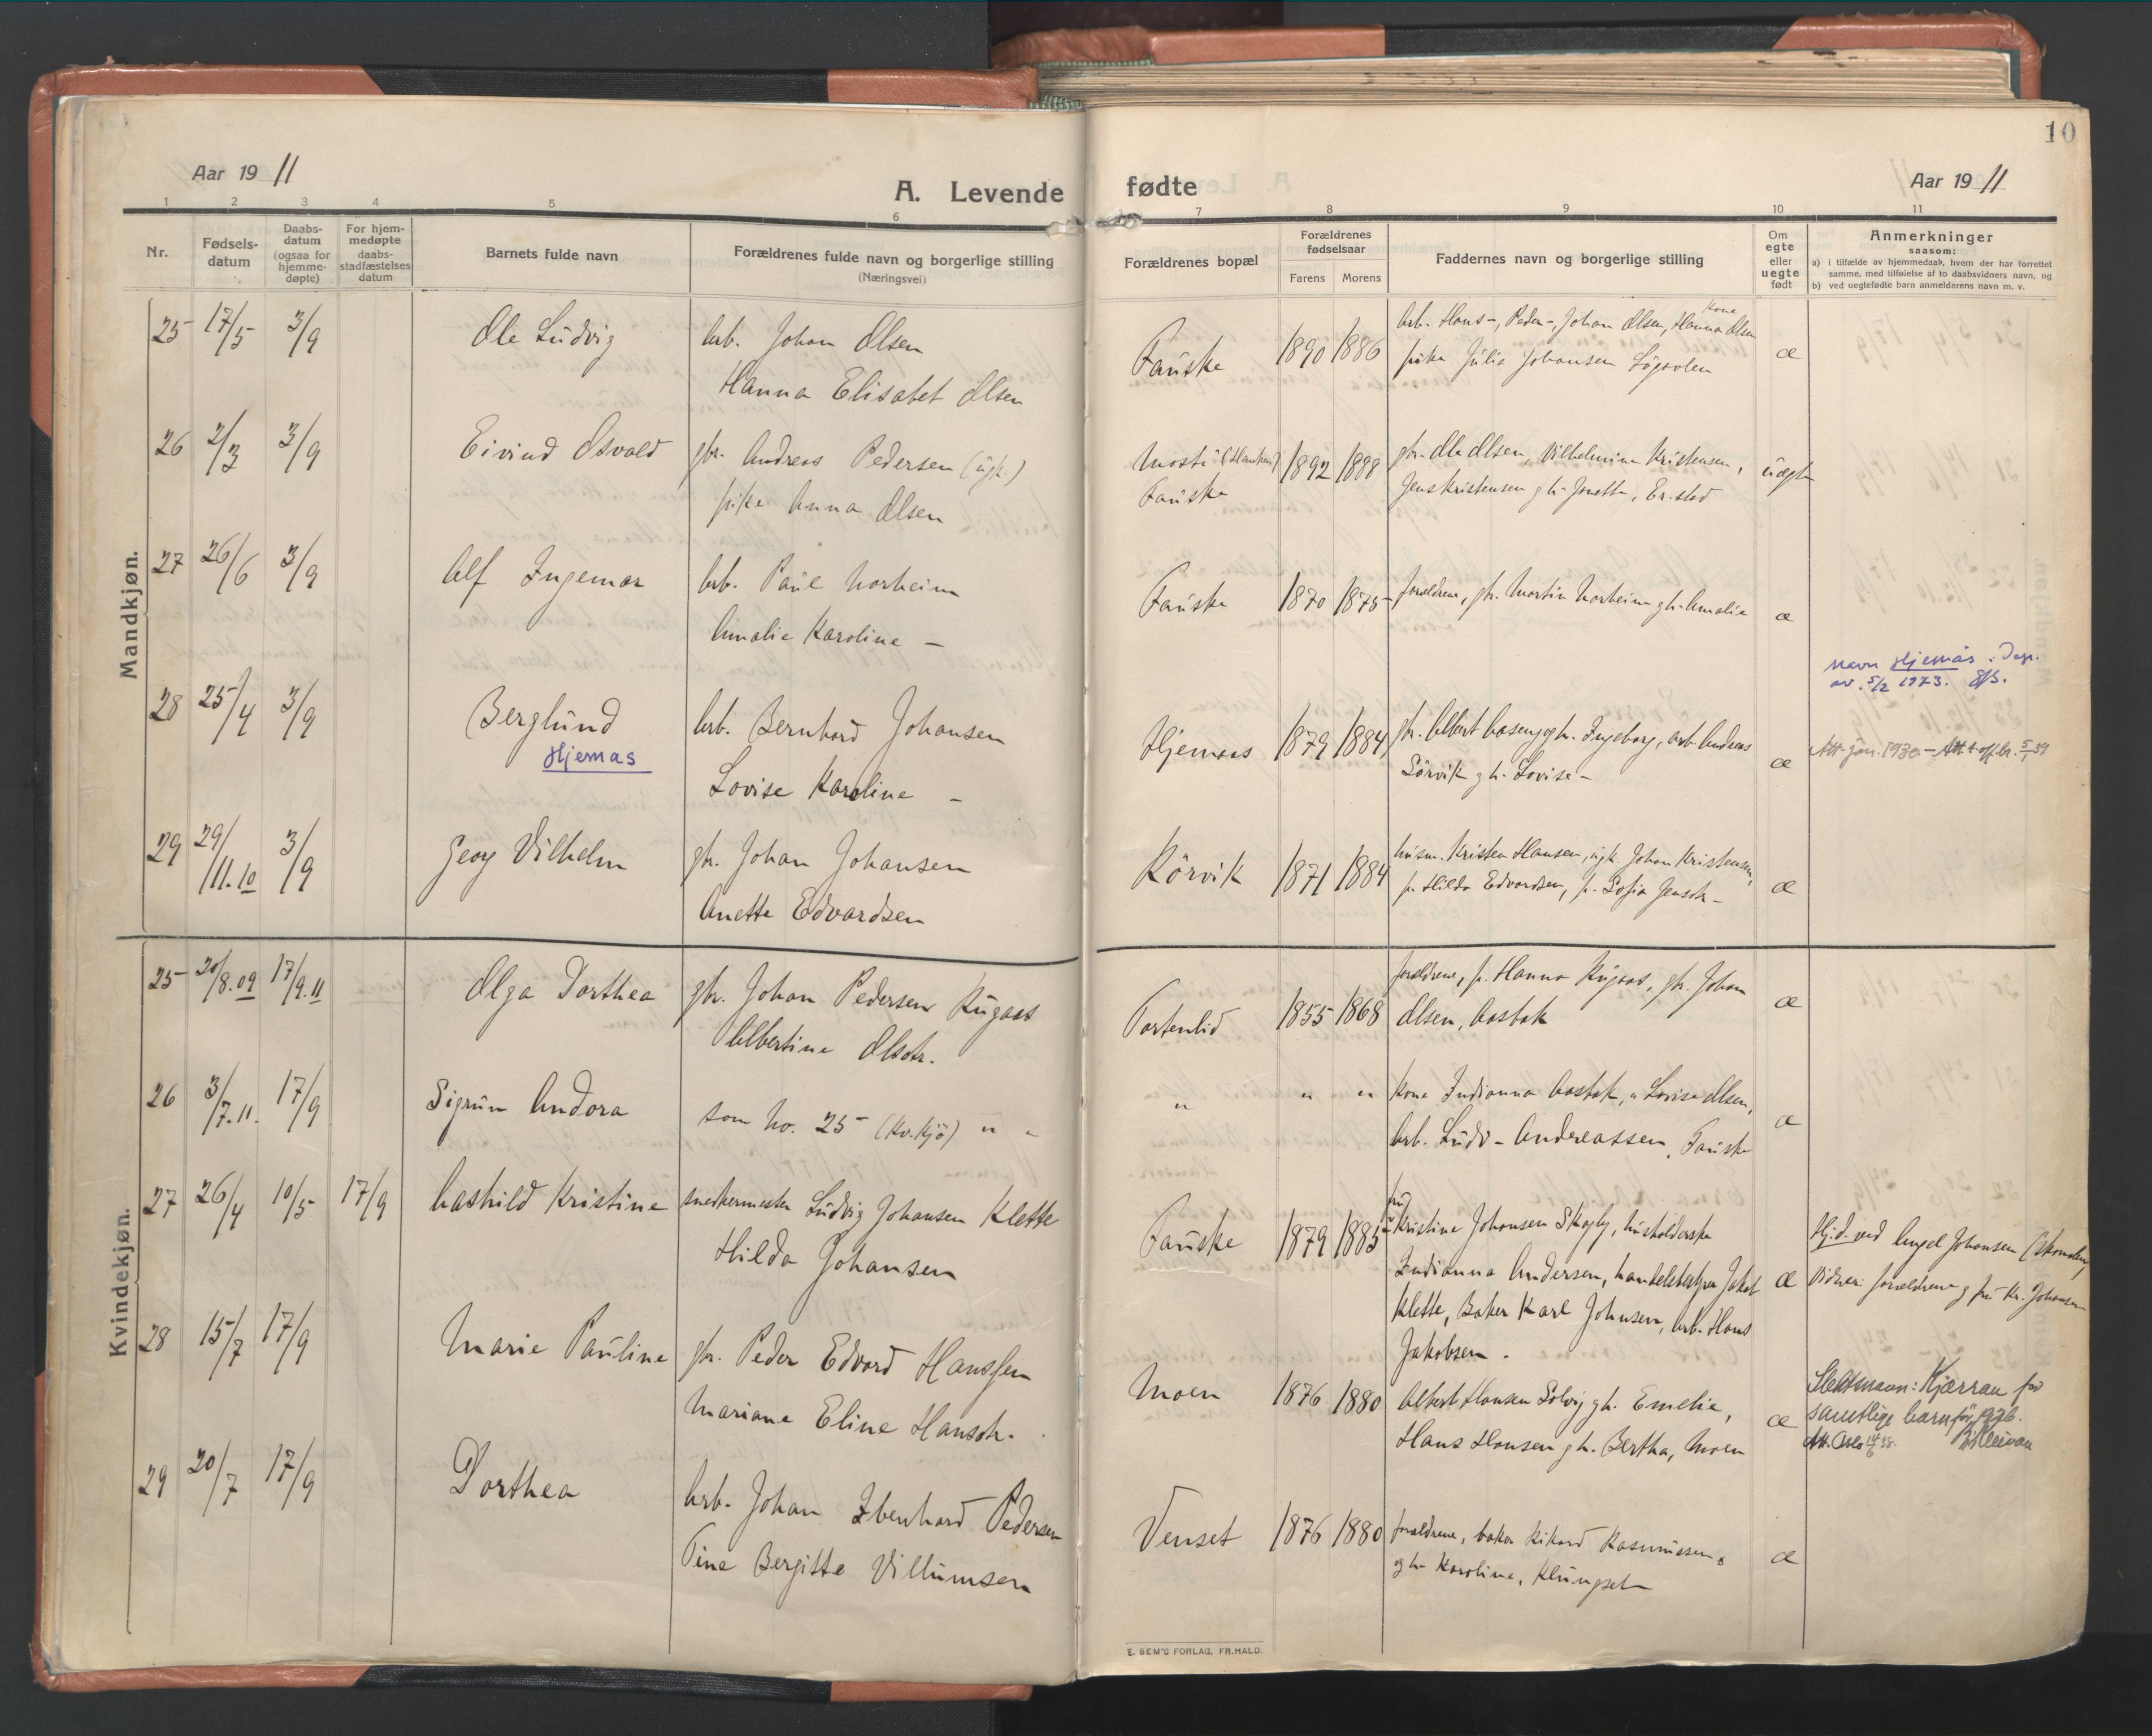 10
Aar 19 11
A. Levende
fødte
Aar 19 11
1 2 3 4 5 6 7 8 9 10 11
Nr.
Fødsels-
datum
Daabs-
datum
(ogsaa for
hjemme-
døpte)
For hjem-
medøpte
daabs-
stadfæstelses
datum
Barnets fulde navn
Forældrenes fulde navn og borgerlige stilling
(Næringsvei)
Forældrenes bopæl
Forældrenes
fødselsaar
Farens Morens
Faddernes navn og borgerlige stilling
Om
egte
eller
uegte
født
Anmerkninger
saasom:
a) i tilfælde av hjemmedaab, hvem der har forrettet
samme, med tilføielse af to daabsvidners navn, og
b) ved uegtefødte barn anmelderens navn m. v.
Mandkjøn.
25 17/5 3/9 Ole Ludvig arb. Johan Olsen
Hanna Elisabet Olsen
Fauske 1890 1886
kone
arb. Hans -, Peder -, Johan Olsen, Hanna Olsen
pike Julie Johansen
æ
26 2/3 3/9 Eivind Osvald gbr. Andreas Pedersen (ugk.)
pike Anna Olsen
Fauske 1892 1888
gbr. Ole Olsen, Vilhelmine Kristensen,
Jens Kristensen gh. Jonette, Erstad
uægte
27 26/6 3/9 Alf Ingemar arb. Paul Norheim
Amalie Karoline –
Fauske 1870 1875
forældrene, gbr. Martin Norheim gh. Amalie
æ
28 25/4 3/9 Berglund
Hjemås
arb. Bernhard Johansen
Lovise Karoline –
Hjemaas 1879 1884
gbr. Albert Aasen gh. Ingeborg, arb. Andreas
Sörvik gh. Lovise –
æ
Navn Hjemås : Dep.
av. 5/2 1973.
Att jan. 1930 –
29 29/11.10 3/9 Georg Vilhelm gbr. Johan Johansen
Anette Edvardsen
Rörvik 1871 1884
husm. Kristen Hansen, ugk. Johan Kristensen,
p. Hilda Edvardsen, p. Sofie Jensdtr –
æ
Kvindekjøn.
25 20/8.09 17/9.11 Olga Dorthea gbr. Johan Pedersen Rugaas
Albertine Olsdtr.
Tortenlid 1855 1868
forældrene, p. Hanna Rugaas, gbr. Johan
Olsen, Aasbak
æ
26 3/7.11. 17/9 Sigrun Andora som No. 25 (Kv.kjö) " "
" " "
kone Indianna Aasbak, " Lovise Olsen,
arb. Ludv- Andreassen, Fauske
æ
27 26/4 10/5 17/9 Aashild Kristine snedkermester Ludvig Johansen Klette
Hilda Johansen
Fauske 1879 1885
fru
Kristine Johansen Skogly, husholderske
Indianna Andersen, handelsbestyrer Jakob
Klette, Baker Karl Johnsen, arb. Hans
Jakobsen.
æ
Hj.d. ved Angel Johansen (skomaker)
Vidner: forældrene g fru Kr. Johansen
28 15/7 17/9 Marie Pauline gbr. Peder Edvard Hanssen
Mariane Eline Hansdtr.
Moen 1876 1880
Albert Hansen Solvig gh. Emelie,
Hans Hansen gh. Bertha, Moen
æ
Slektsnavn: Kjærran for
samtlige barn før 1926.
Att. Oslo 14/6 38.
29 20/7 17/9 Dorthea arb. Johan Ibenhard Pedersen
Tine Bergitte Villumsen
Venset 1876 1880
forældrene, baker Rikard Rasmussen
gh Karoline, Klungset
æ
E. SEM'S FORLAG, FR.HALD.